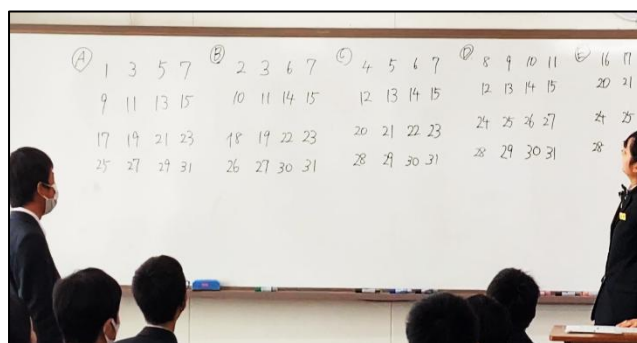 Ⓐ 1 3 5 7
9 11 13 15
17 19 21 23
25 27 29 31
Ⓑ 2 3 6 7
10 11 14 15
18 19 22 23
26 27 30 31
Ⓒ 4 5 6 7
12 13 14 15
20 21 22 23
28 29 30 31
Ⓓ 8 9 10 11
12 13 14 15
24 25 26 27
28 29 30 31
Ⓔ 16 17
20 21
24 25
28